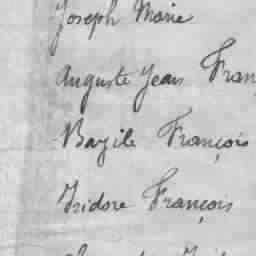 Joseph Marie
Auguste Jean Fran
Bazile François
Isidore François